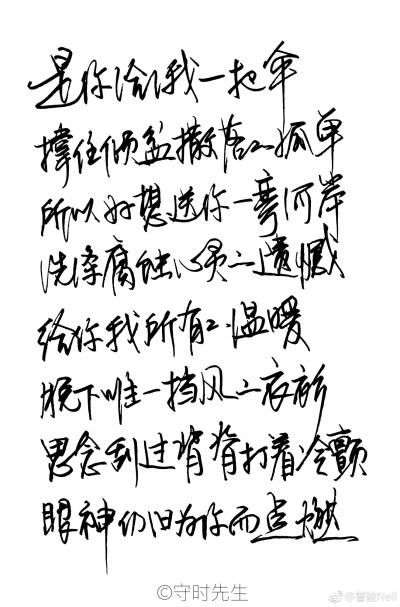 是你给我一把伞
撑住倾盆撒落的孤单
所以好想送你一弯河岸
洗涤腐蚀心灵的遗憾
给你我所有的温暖
脱下唯一挡风的衣衫
思念刮过背脊打着冷颤
眼神仍旧为你而点燃
©守时先生
@曹骏Neil